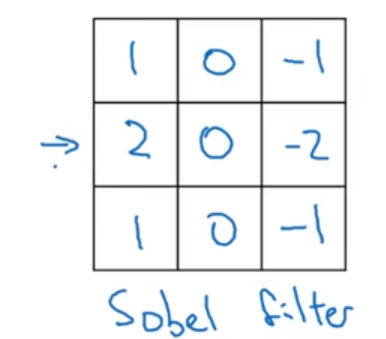 1 0 -1
→ 2 0 -2
1 0 -1
Sobel filter